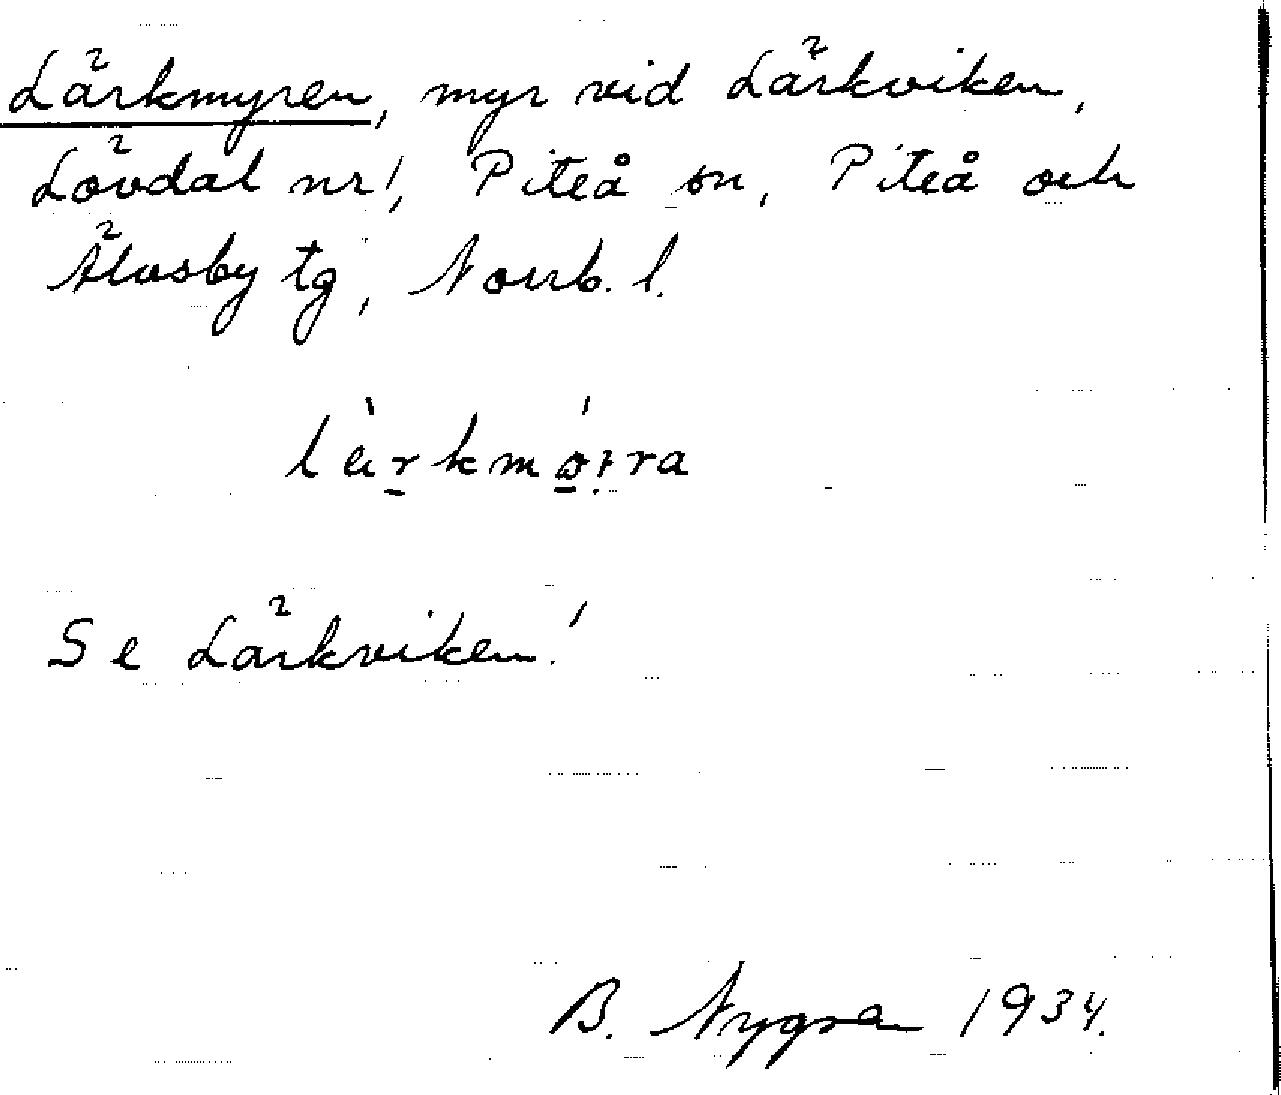 Lärkmyren, myr vid Lärkviken,
Lövdal nr 1, Piteå sn, Piteå och
Älvsby tg, Norrb. l.
lärkmø̱rra
Se Lärkviken!
B. Nygren 1934.